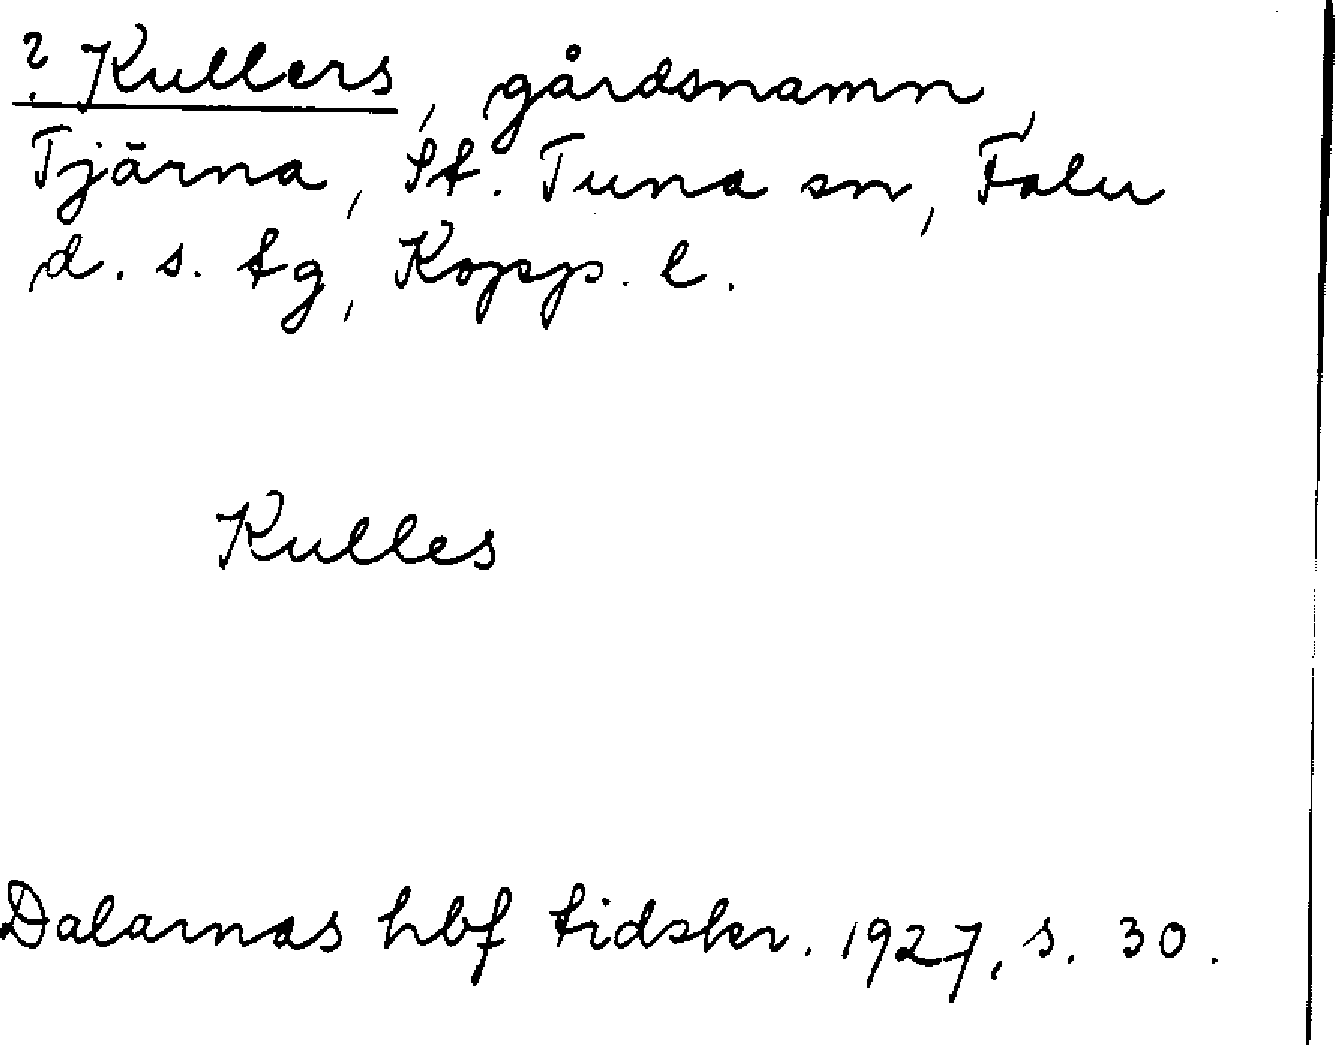 ? Kullers, gårdsnamn,
Tjärna, St. Tuna sn, Falu
d. s. tg, Kopp. l.
Kulles
Dalarnas hbf tidskr. 1927, s. 30.